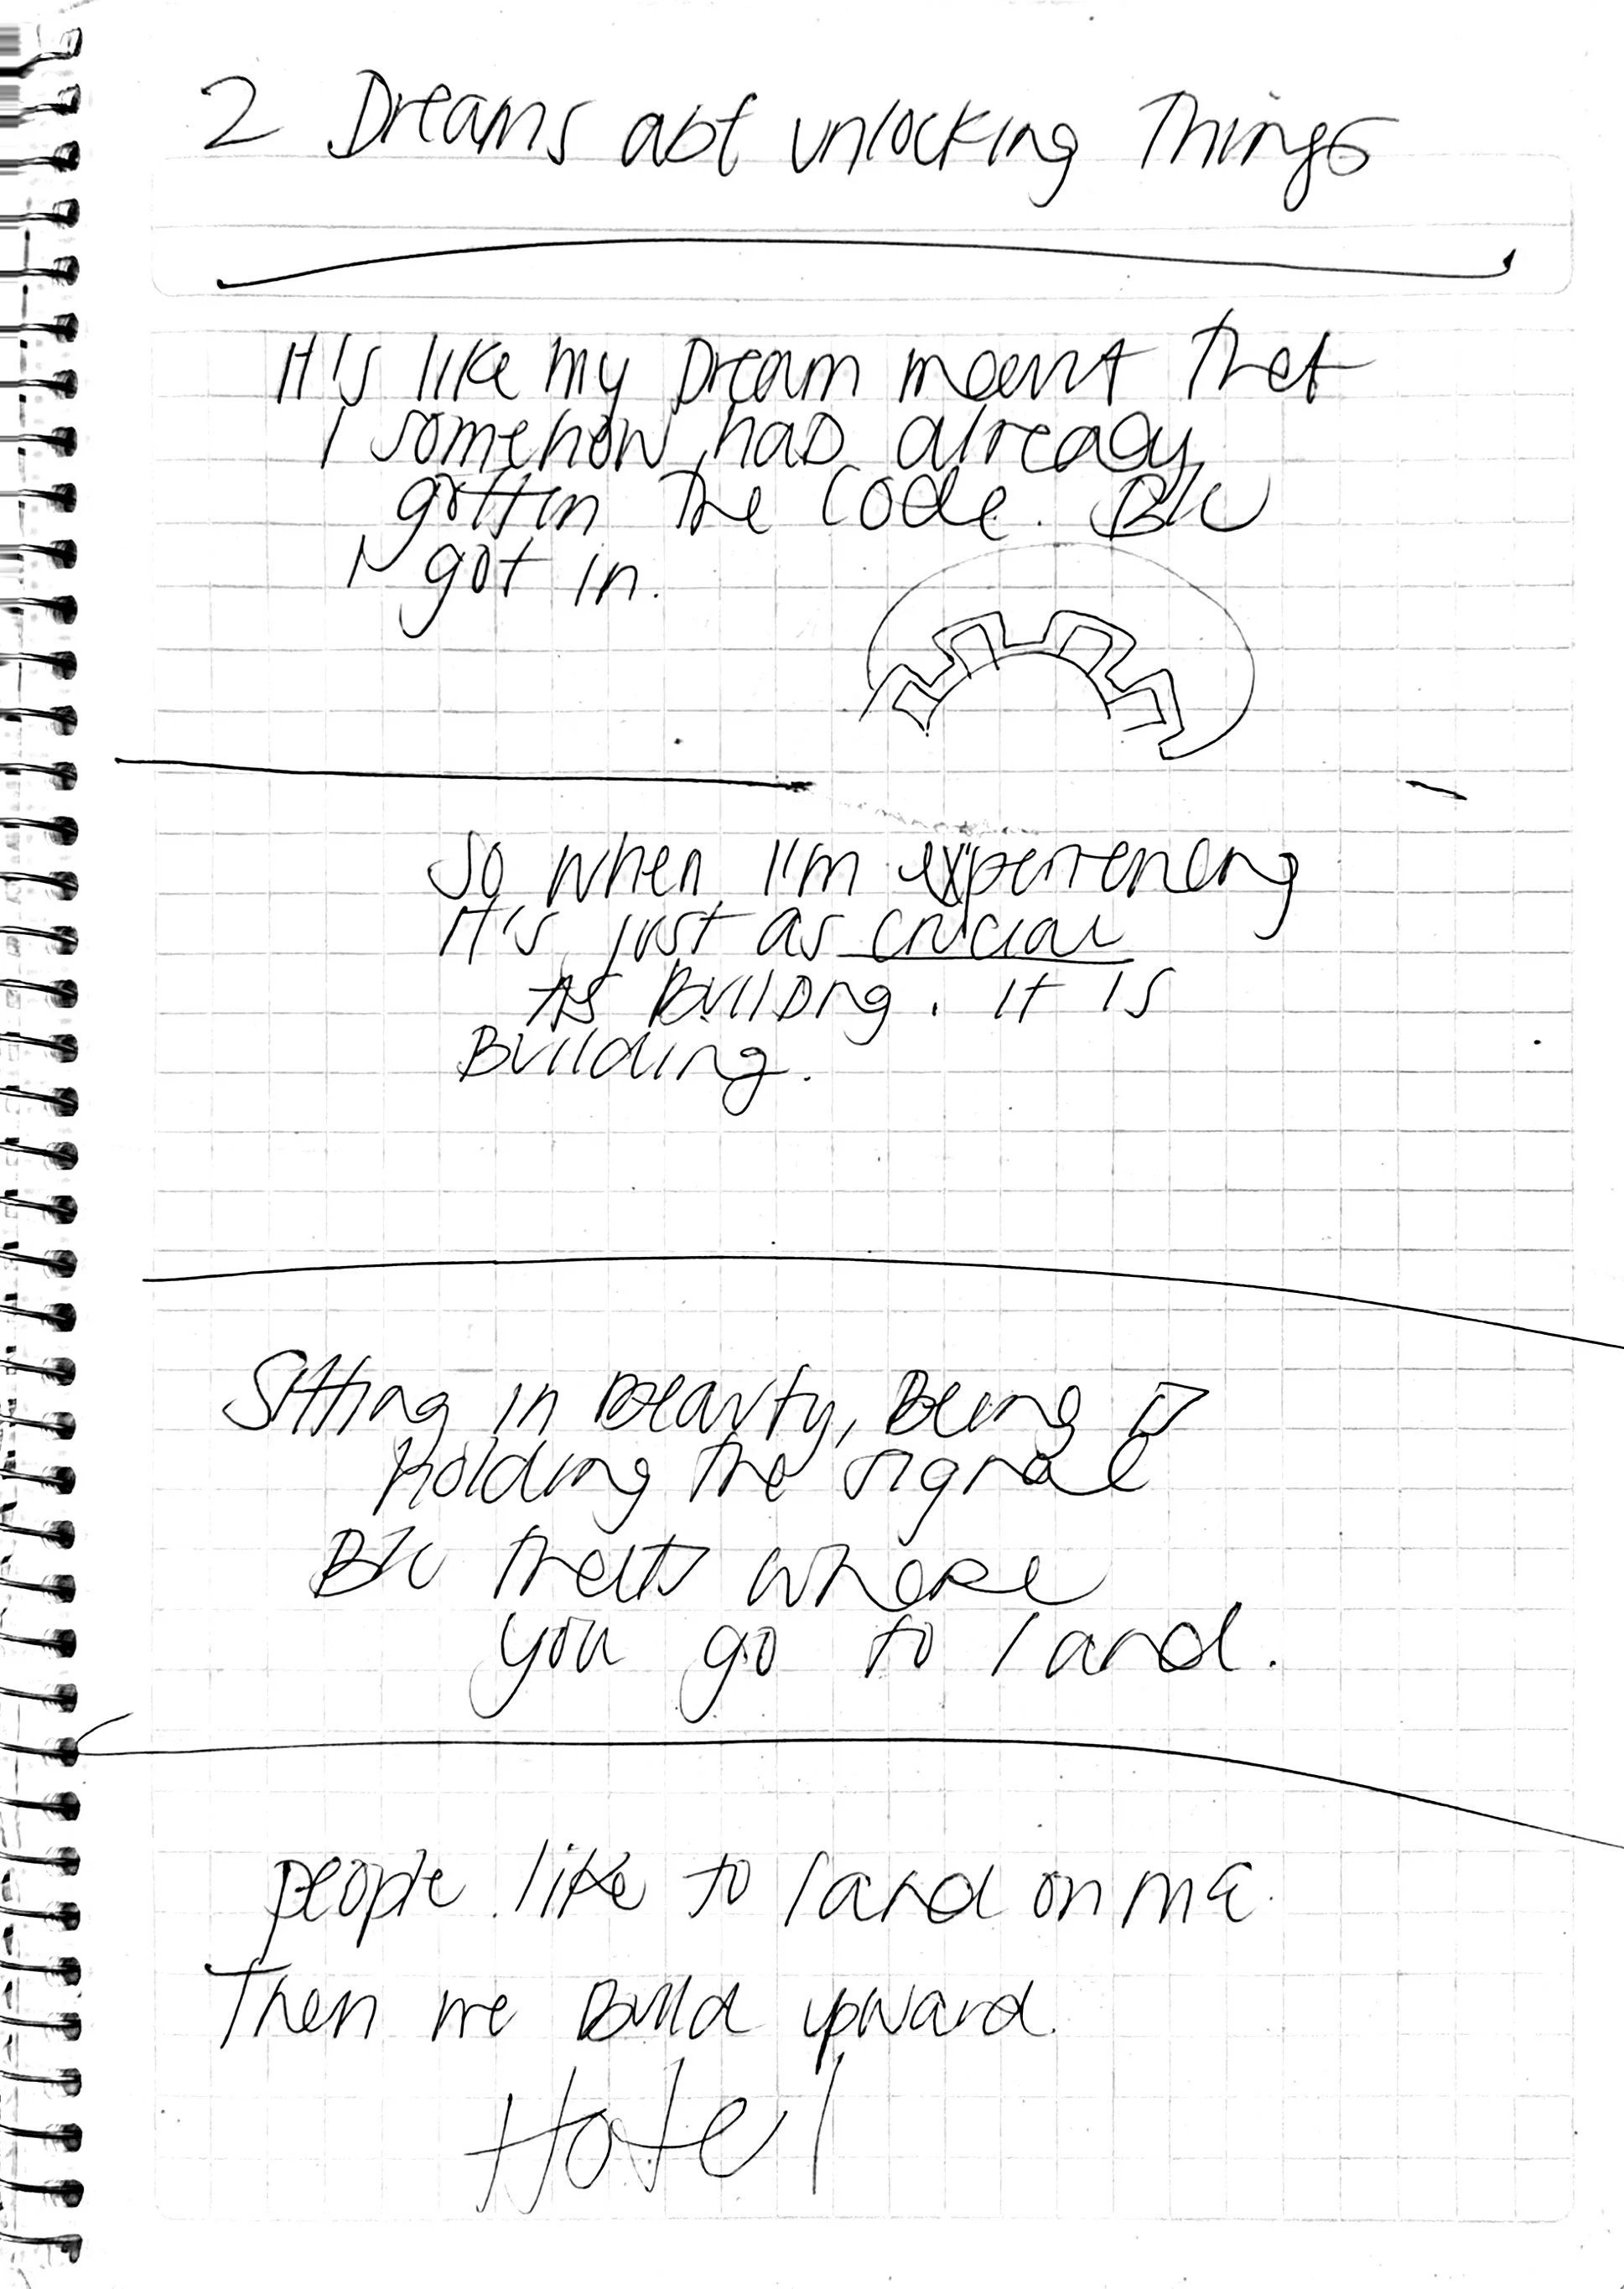 2 Dreams abt unlocking Things
It's like my Dream meant that
I somehow had already
gotten the code. B/c
I got in.
So when I'm experiencing
it's just as crucial
As Building. It is
Building.
Sitting in Beauty, Being is
Holding the signal
B/c that's where
you go to land.
people like to land on me.
Then we Build upward.
Hotel